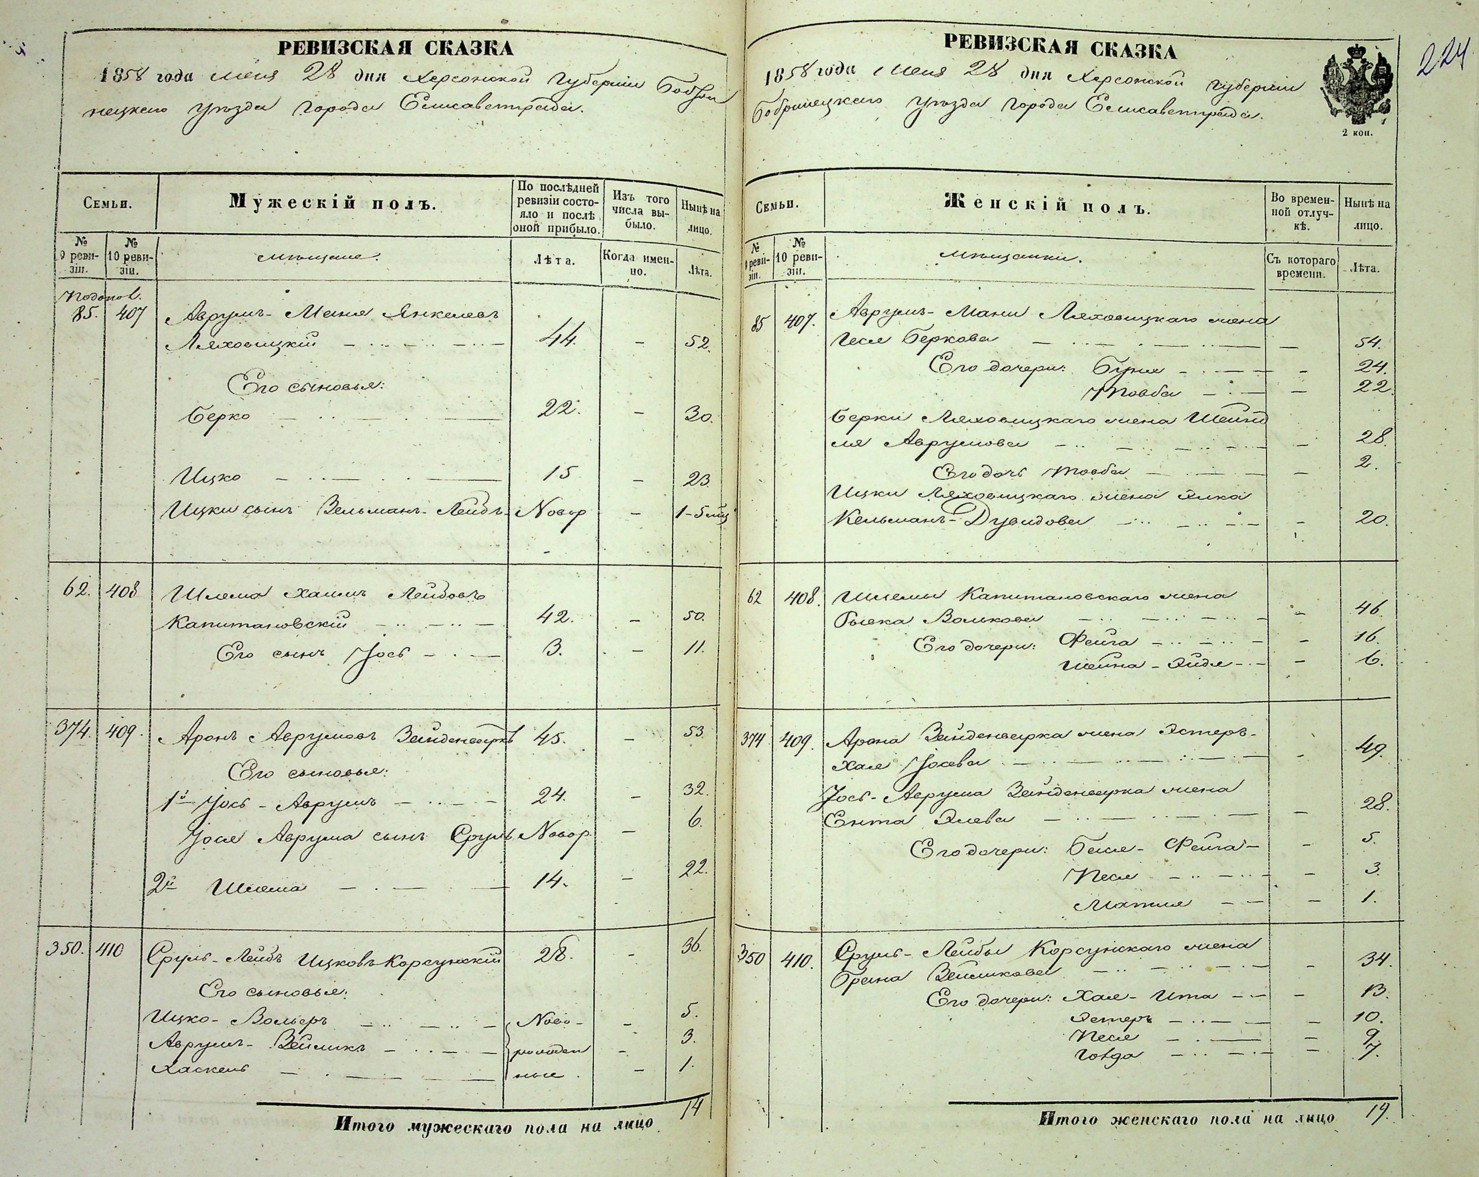 РЕВИЗСКАЯ СКАЗКА
1858 года июня 28 дня Херсонской губернии Бобри
нецкаго уѣзда города Елисаветграда.
Семьи.
Мужескій полъ.
По послѣдней ревизіи состояло и послѣ оной прибыло.
Изъ того числа выбыло.
Нынѣ на лицо.
№ 9 ревизіи.
№ 10 ревизіи.
мѣщане.
Лѣта.
Когда именно.
Лѣта.
85. 407
Аврумъ-Маня Янкелевъ
Ляховицкій 44. 52.
Его сыновья:
Берко 22. 30.
Ицко 15 23.
Ицки сынъ Зельманъ-Лейбъ Новор 1-5 мѣц
62. 408
Шлема Хаимъ Лейбовъ
Капитановскій 42. 50.
Его сынъ Іось 3. 11.
374. 409.
Аронъ Аврумовъ Зейденверкъ 45. 53
Его сыновья:
1й Іось-Аврумъ 24. 32.
Іося Аврума сынъ Сруль Новор. 6.
2й Шлема 14. 22.
350. 410
Сруль-Лейбъ Ицковъ Корсунскій 28. 36.
Его сыновья:
Ицко-Вольеръ Ново- 5.
Аврумъ-Зейликъ рожден 3.
Хаскель ные. 1.
Итого мужескаго пола на лицо 14
РЕВИЗСКАЯ СКАЗКА
224
1858 года июня 28 дня Херсонской губернии
Бобринецкаго уѣзда города Елисаветграда.
2 коп.
Семьи.
Женскій полъ.
Во временной отлучкѣ.
Нынѣ на лицо.
№ 9 ревизіи.
№ 10 ревизіи.
мѣщанки.
Съ котораго времени.
Лѣта.
85 407.
Аврумъ-Мани Ляховицкаго жена
Геся Беркова 54.
Его дочери: Буня 24.
Товба 22.
Берки Ляховицкаго жена Шейнд
ля Аврумова 28.
Его дочь Товба 2.
Ицки Ляховицкаго жена Элка
Кельманъ-Дувидова 20.
62 408.
Шлемы Капитановскаго жена
Рывка Волькова 46.
Его дочери: Фейга 16.
Шейна-Эйдя 6.
374 409.
Арона Зейденверка жена Эстеръ-
Хая Іосева 49.
Іось-Аврума Зейденверка жена
Ента Элева 28.
Его дочери: Бася-Фейга 5.
Песя 3.
Матля 1.
350 410.
Сруль-Лейбы Корсунскаго жена
Брана Зейликова 34.
Его дочери: Хая-Ита 13.
Эстеръ 10.
Песя 9.
Голда 7.
Итого женскаго пола на лицо 19.